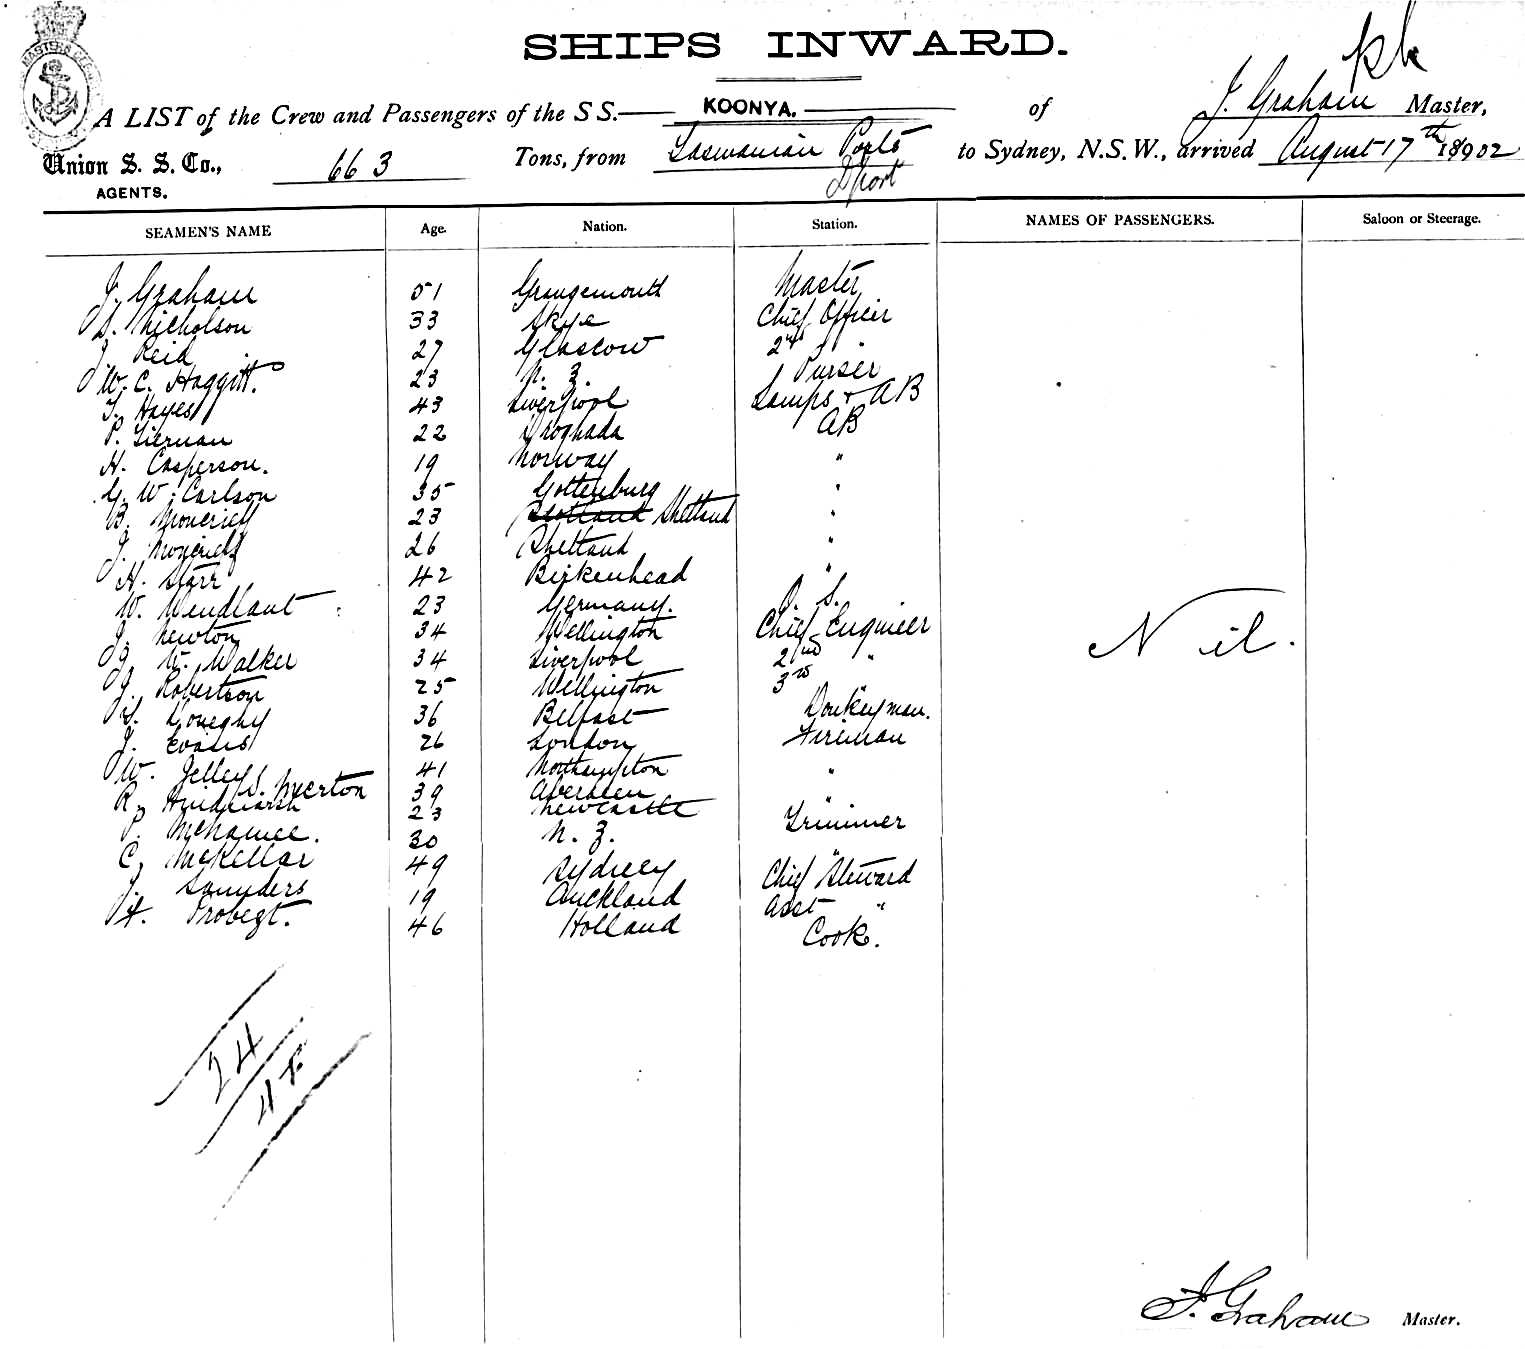 SHIPS INWARD.
A LIST of the Crew and Passengers of the S S. KOONYA. of J. Graham Master,
Union S. S. Co., 663 Tons, from Tasmanian Ports to Sydney, N.S.W., arrived August 17th 18902
AGENTS. Dport
SEAMEN'S NAME Age. Nation. Station. NAMES OF PASSENGERS. Saloon or Steerage.
J. Graham 51 Grangemouth Master
Nicholson 33 Skye Chief Officer
J. Reid 27 Glascow 2nd
W. C. Haggitt. 23 N. Z. Purser
T. Hayes 43 Liverpool Lamps + AB
P. Tiernan 22 Drogheda AB
H. Casperson. 19 Norway "
G. W. Carlson 35 Gottenburg "
B. Moncrieff 23 Scotland Shetland "
J. Moncrieff 26 Shetland "
H. Starr 42 Birkenhead "
W. Wendlant 23 Germany. O. S.
J. Newton 34 Wellington Chief Engineer
J. W. Walker 34 Liverpool 2nd "
J. Robertson 25 Wellington 3rd
36 Belfast Donkeyman.
J. Evans 26 London Fireman
W. Jelley 41 Northampton "
S. Merton 39 Aberdeen "
R. Hindmarsh 23 Newcastle Trimmer
P. McNamee. 30 N. Z. "
C. McKellar 49 Sydney Chief Steward
J. Saunders 19 Auckland Asst "
46 Holland Cook.
Nil.
24
J. Graham Master.